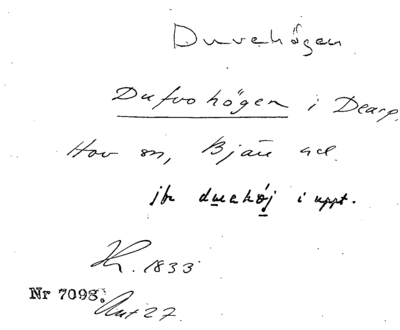 Duvehögen
Dufvohögen i Dearp,
Hov sn, Bjäre hd.
jfr duehöj i uppt.
1833
Nr 7098.
Ant 27